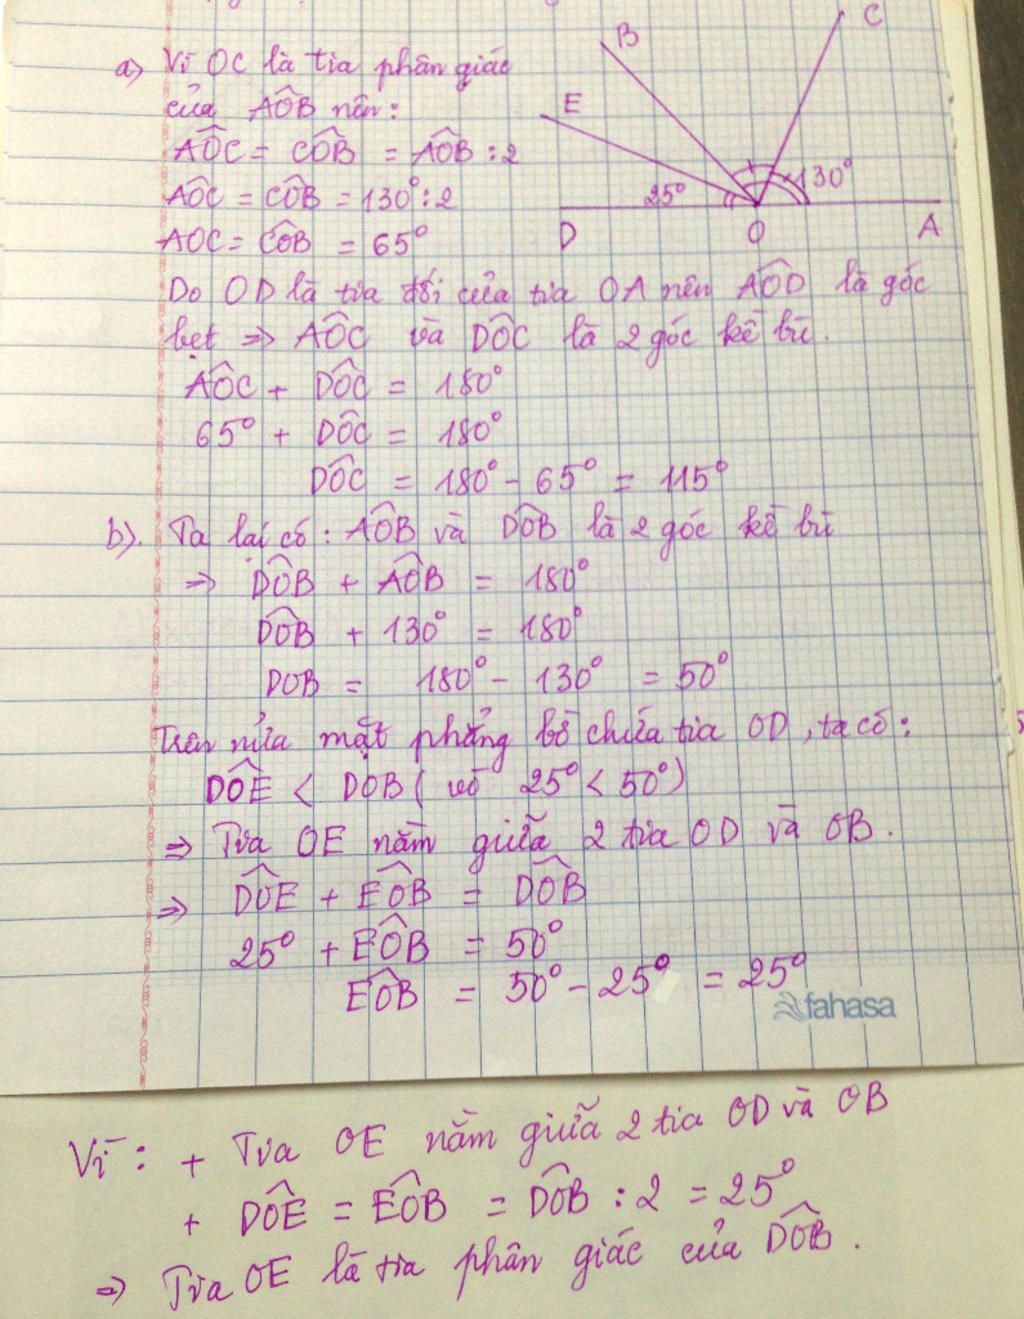 C
B
a) Vì OC là tia phân giác
của AÔB nên:
E
AÔC = CÔB = AÔB : 2
130°
AÔC = CÔB = 130° : 2
25°
D O A
AOC = CÔB = 65°
Do OD là tia đối của tia OA nên AÔD là góc
bẹt => AÔC và DÔC là 2 góc kề bù.
AÔC + DÔC = 180°
65° + DÔC = 180°
DÔC = 180° - 65° = 115°
b). Ta lại có: AÔB và DÔB là 2 góc kề bù
=> DÔB + AÔB = 180°
DÔB + 130° = 180°
DOB = 180° - 130° = 50°
Trên nửa mặt phẳng bờ chứa tia OD, ta có:
DÔE < DOB ( vì 25° < 50°)
=> Tia OE nằm giữa 2 tia OD và OB.
=> DÔE + EÔB = DÔB
25° + EÔB = 50°
EÔB = 50° - 25° = 25°
fahasa
Vì: + Tia OE nằm giữa 2 tia OD và OB
+ DÔE = EÔB = DÔB : 2 = 25°
=> Tia OE là tia phân giác của DÔB.